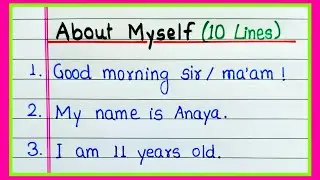 About Myself (10 Lines)
1. Good morning sir / ma'am !
2. My name is Anaya.
3. I am 11 years old.